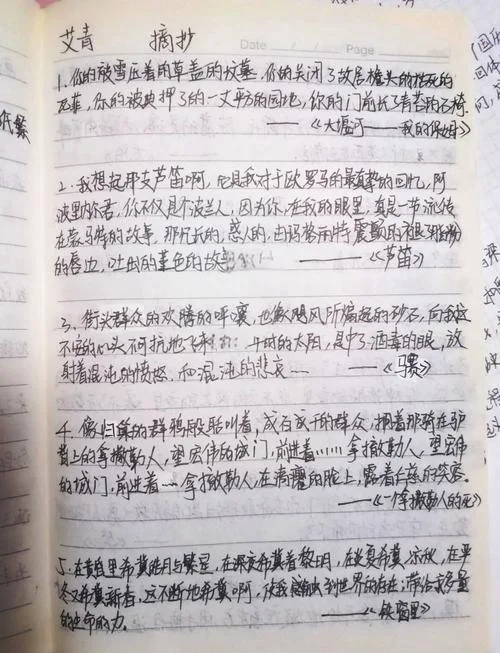 艾青 摘抄
Date / / Page
1. 你的被雪压着的草盖的坟墓，你的关闭了的故居檐头的枯死的
瓦菲，你的被典押了的一丈平方的园地，你的门前长了青苔的石椅.
——《大堰河——我的保姆》
2. 我想起那支芦笛啊，它是我对于欧罗巴的最真挚的回忆，阿
波里内尔君，你不仅是个波兰人，因为你，在我的眼里，真是一节流传
在蒙马特的故事，那冗长的，惑人的，由玛格丽特震颤的褪
的唇边，吐出的堇色的故事
——《芦笛》
3. 街头群众的欢腾的呼嚷，也像飓风所煽起的砂石，向我这
不安的心头不可抗地飞来 午时的太阳，是中了酒毒的眼，放
射着混沌的愤怒，和混沌的悲哀……
4. 像归巢的群鸦般聒叫着，成百成千的群众，拥着那骑在驴
背上的拿撒勒人，望宏伟的城门，前进着……拿撒勒人，望宏伟
的城门，前进着…拿撒勒人，在清癯的脸上，露着仁慈的笑容.
——《一个拿撒勒人的死》
5. 在黄昏里希冀皓月与繁星，在深夜希冀着黎明，在炎夏希冀凉秋，在严
冬又希冀新春，这不断地希冀啊，使我触到世界的存在；带给我多量
的生命的力.
——《铁窗里》